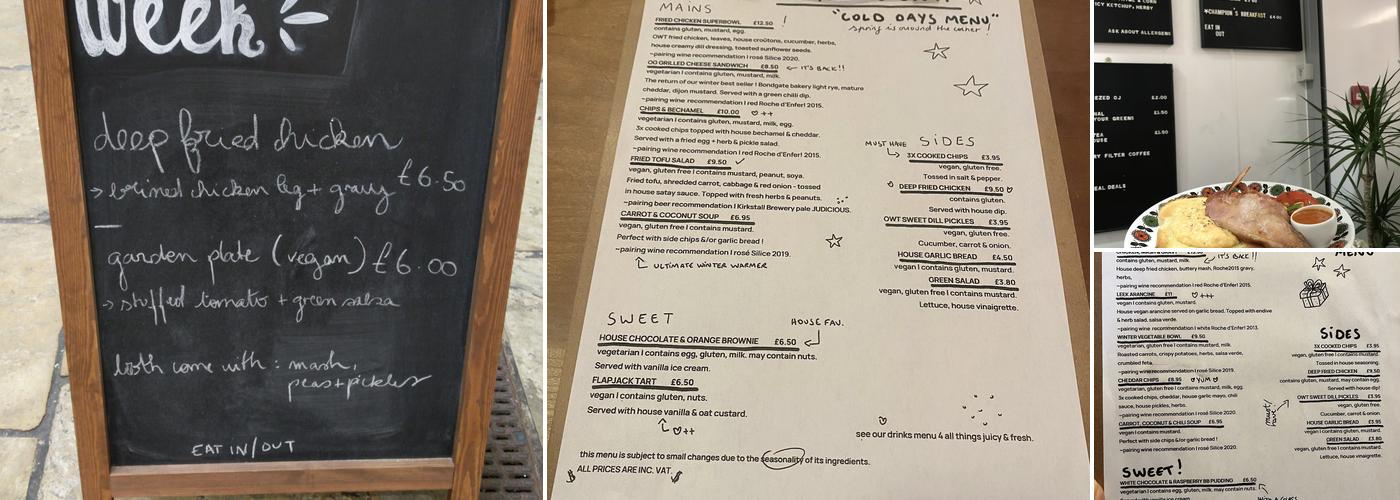 Week
deep fried chicken
→ brined chicken leg + gravy £6.50
garden plate (vegan) £6.00
→ stuffed tomato + green salsa
both come with : mash,
peas + pickles
EAT IN/OUT
MAINS
"COLD DAYS MENU"
spring is around the corner !
FRIED CHICKEN SUPERBOWL £12.50 !
contains gluten, mustard, egg.
OWT fried chicken, leaves, house croûtons, cucumber, herbs,
house creamy dill dressing, toasted sunflower seeds.
~pairing wine recommendation I rosé Silice 2020.
OG GRILLED CHEESE SANDWICH £8.50 ← IT'S BACK!!
vegetarian I contains gluten, mustard, milk.
The return of our winter best seller ! Bondgate bakery light rye, mature
cheddar, dijon mustard. Served with a green chilli dip.
~pairing wine recommendation I red Roche d'Enfer! 2015.
CHIPS & BECHAMEL £10.00 ♡++
vegetarian I contains gluten, mustard, milk, egg.
3x cooked chips topped with house bechamel & cheddar.
Served with a fried egg + herb & pickle salad.
~pairing wine recommendation I red Roche d'Enfer! 2015.
FRIED TOFU SALAD £9.50 ✓
vegan, gluten free I contains mustard, peanut, soya.
Fried tofu, shredded carrot, cabbage & red onion - tossed
in house satay sauce. Topped with fresh herbs & peanuts.
~pairing beer recommendation I Kirkstall Brewery pale JUDICIOUS.
CARROT & COCONUT SOUP £6.95
vegan I contains gluten.
Perfect with side chips &/or garlic bread !
~pairing wine recommendation I rosé Silice 2019.
ULTIMATE WINTER WARMER
MUST HAVE
SIDES
3X COOKED CHIPS £3.95
vegan, gluten free.
Tossed in salt & pepper.
♡ DEEP FRIED CHICKEN £9.50 ♡
contains gluten.
Served with house dip.
OWT SWEET DILL PICKLES £3.95
vegan, gluten free.
Cucumber, carrot & onion.
HOUSE GARLIC BREAD £4.50
vegan I contains gluten.
GREEN SALAD £3.80
vegan, gluten free I contains mustard.
Lettuce, house vinaigrette.
SWEET
HOUSE FAV.
HOUSE CHOCOLATE & ORANGE BROWNIE £6.50
vegetarian I contains egg, gluten, milk. may contain nuts.
Served with vanilla ice cream.
FLAPJACK TART £6.50
vegan I contains gluten, nuts.
Served with house vanilla & oat custard.
♡++
see our drinks menu 4 all things juicy & fresh.
this menu is subject to small changes due to the seasonality of its ingredients.
$ ALL PRICES ARE INC. VAT. $
ICY KETCHUP, HERBY
ASK ABOUT ALLERGENS
*CHAMPION'S BREAKFAST
EAT IN
OUT
EZED OJ £2.00
YOUR GREENS!
HOUSE
RY FILTER COFFEE
EAL DEALS
MENU"
contains gluten, mustard, milk.
IT'S BACK !!
House deep fried chicken, buttery mash, Roche2015 gravy,
herbs,
~pairing wine recommendation I red Roche d'Enfer! 2015.
LEEK ARANCINE £11 ♡+++
vegan I contains gluten, mustard.
House vegan arancine served on garlic bread. Topped with endive
& herb salad, salsa verde.
~pairing wine recommendation I white Roche d'Enfer! 2013.
WINTER VEGETABLE BOWL £9.50
vegetarian, gluten free I contains mustard, milk.
Roasted carrots, crispy potatoes, herbs, salsa verde,
crumbled feta.
~pairing wine recommendation I rosé Silice 2019.
CHEDDAR CHIPS £8.95 ♡YUM♡
vegetarian, gluten free I contains mustard, milk, egg.
3x cooked chips, cheddar, house garlic mayo, chili
sauce, house pickles, herbs.
~pairing wine recommendation I rosé Silice 2020.
CARROT, COCONUT & CHILI SOUP £6.95
vegan I contains mustard.
Perfect with side chips &/or garlic bread !
~pairing wine recommendation I rosé Silice 2020.
SIDES
3X COOKED CHIPS £3.95
vegan, gluten free I contains mustard.
Tossed in house seasoning.
DEEP FRIED CHICKEN £9.50
contains gluten, mustard, may contain egg.
Served with house dip!
must/have
OWT SWEET DILL PICKLES £3.95
vegan, gluten free.
Cucumber, carrot & onion.
HOUSE GARLIC BREAD £3.95
vegan I contains gluten.
GREEN SALAD £3.80
vegan, gluten free I contains mustard.
Lettuce, house vinaigrette.
SWEET!
WHITE CHOCOLATE & RASPBERRY BB PUDDING £6.50
vegetarian I contains egg, gluten, milk